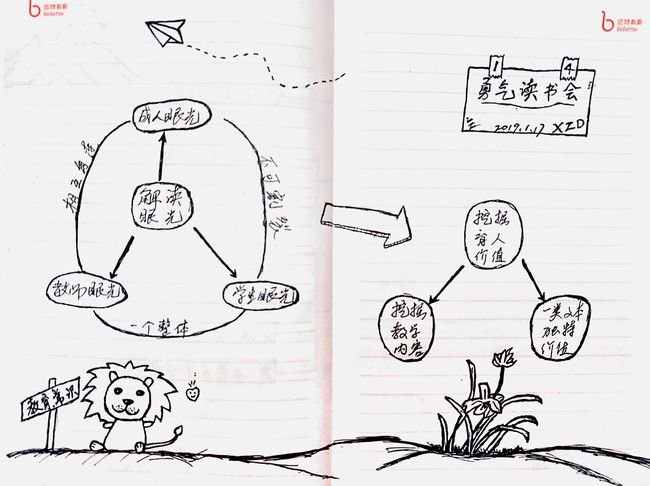 佰特教育
BeBetter
佰特教育
BeBetter
1 4
勇气读书会
2019.1.17 XZD
成人眼光
相互
不可割裂
解读
眼光
教师眼光
学生眼光
一个整体
教育常识
挖掘
育人
价值
挖掘
教学
内容
一类文本
独特
价值